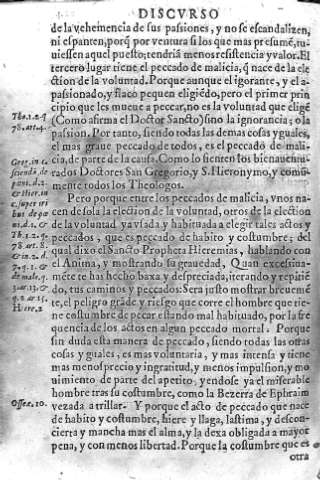 DISCVRSO
de la vehemencia de sus passiones, y no se escandalizen,
ni espanten, porq̃ por ventura si los que mas presumẽ, tu-
uiessen aquel puesto, tendriã menos resistẽcia y valor. El
tercero lugar tiene el peccado de malicia, q̃ nace de la ele
ction de la voluntad. Porque aunque el ignorante, y el a-
passionado, y flaco pequen eligiẽdo, pero el primer prin
cipio que les mueue a peccar, no es la voluntad que eligẽ
Tho.1.2.q
(Como afirma el Doctor Sancto) sino la ignorancia; o la
78.art.4.
passion. Por tanto, siendo todas las demas cosas yguales,
el mas graue peccado de todos, es el peccado de mali-
cia, de parte de la causa. Como lo sienten los bienauentu
rados Doctores San Gregorio, y S. Hieronymo, y comũ-
mente todos los Theologos.
Pero porque entre los peccados de malicia, vnos na-
cen de sola la election de la voluntad, otros de la election
de la voluntad ya vsada y habituada a elegir tales actos y
peccados, que es peccado de habito y costumbre; del
qual dixo el Sancto Propheta Hieremias, hablando con
el Anima, y mostrando su grauedad. Quan excessiua-
mẽte te has hecho baxa y despreciada, iterando y repitiẽ
do, tus caminos y peccados: Sera justo mostrar breuemẽ
te, el peligro grãde y riesgo que corre el hombre que tie-
Hiere.2
ne costumbre de pecar estando mal habituado, por la fre
quencia de los actos en algun peccado mortal. Porque
sin duda esta manera de peccado, siendo todas las otras
cosas yguales, es mas voluntaria, y mas intensa y tiene
mas menosprecio y ingratitud, y menos impulsion, y mo
uimiento de parte del apetito, yendose ya el miserable
hombre tras su costumbre, como la Bezerra de Ephraim
Osseæ.10.
vezada a trillar. Y porque el acto de peccado que nace
de habito y costumbre, hiere y llaga, lastima, y descon-
cierta y mancha mas el alma, y la dexa obligada a mayor
pena, y con menos libertad. Porque la costumbre que es
otra